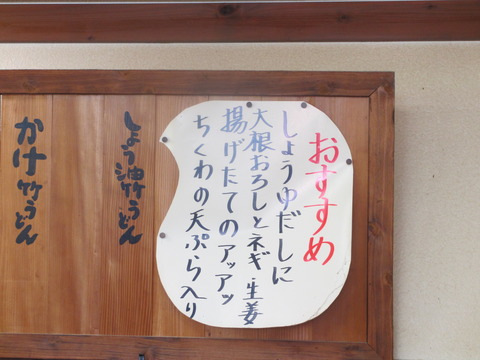 おすすめ
しょうゆだしに
大根おろしとネギ生姜
揚げたてのアッアッ
ちくわの天ぷら入り
しょう油竹うどん
かけ竹うどん